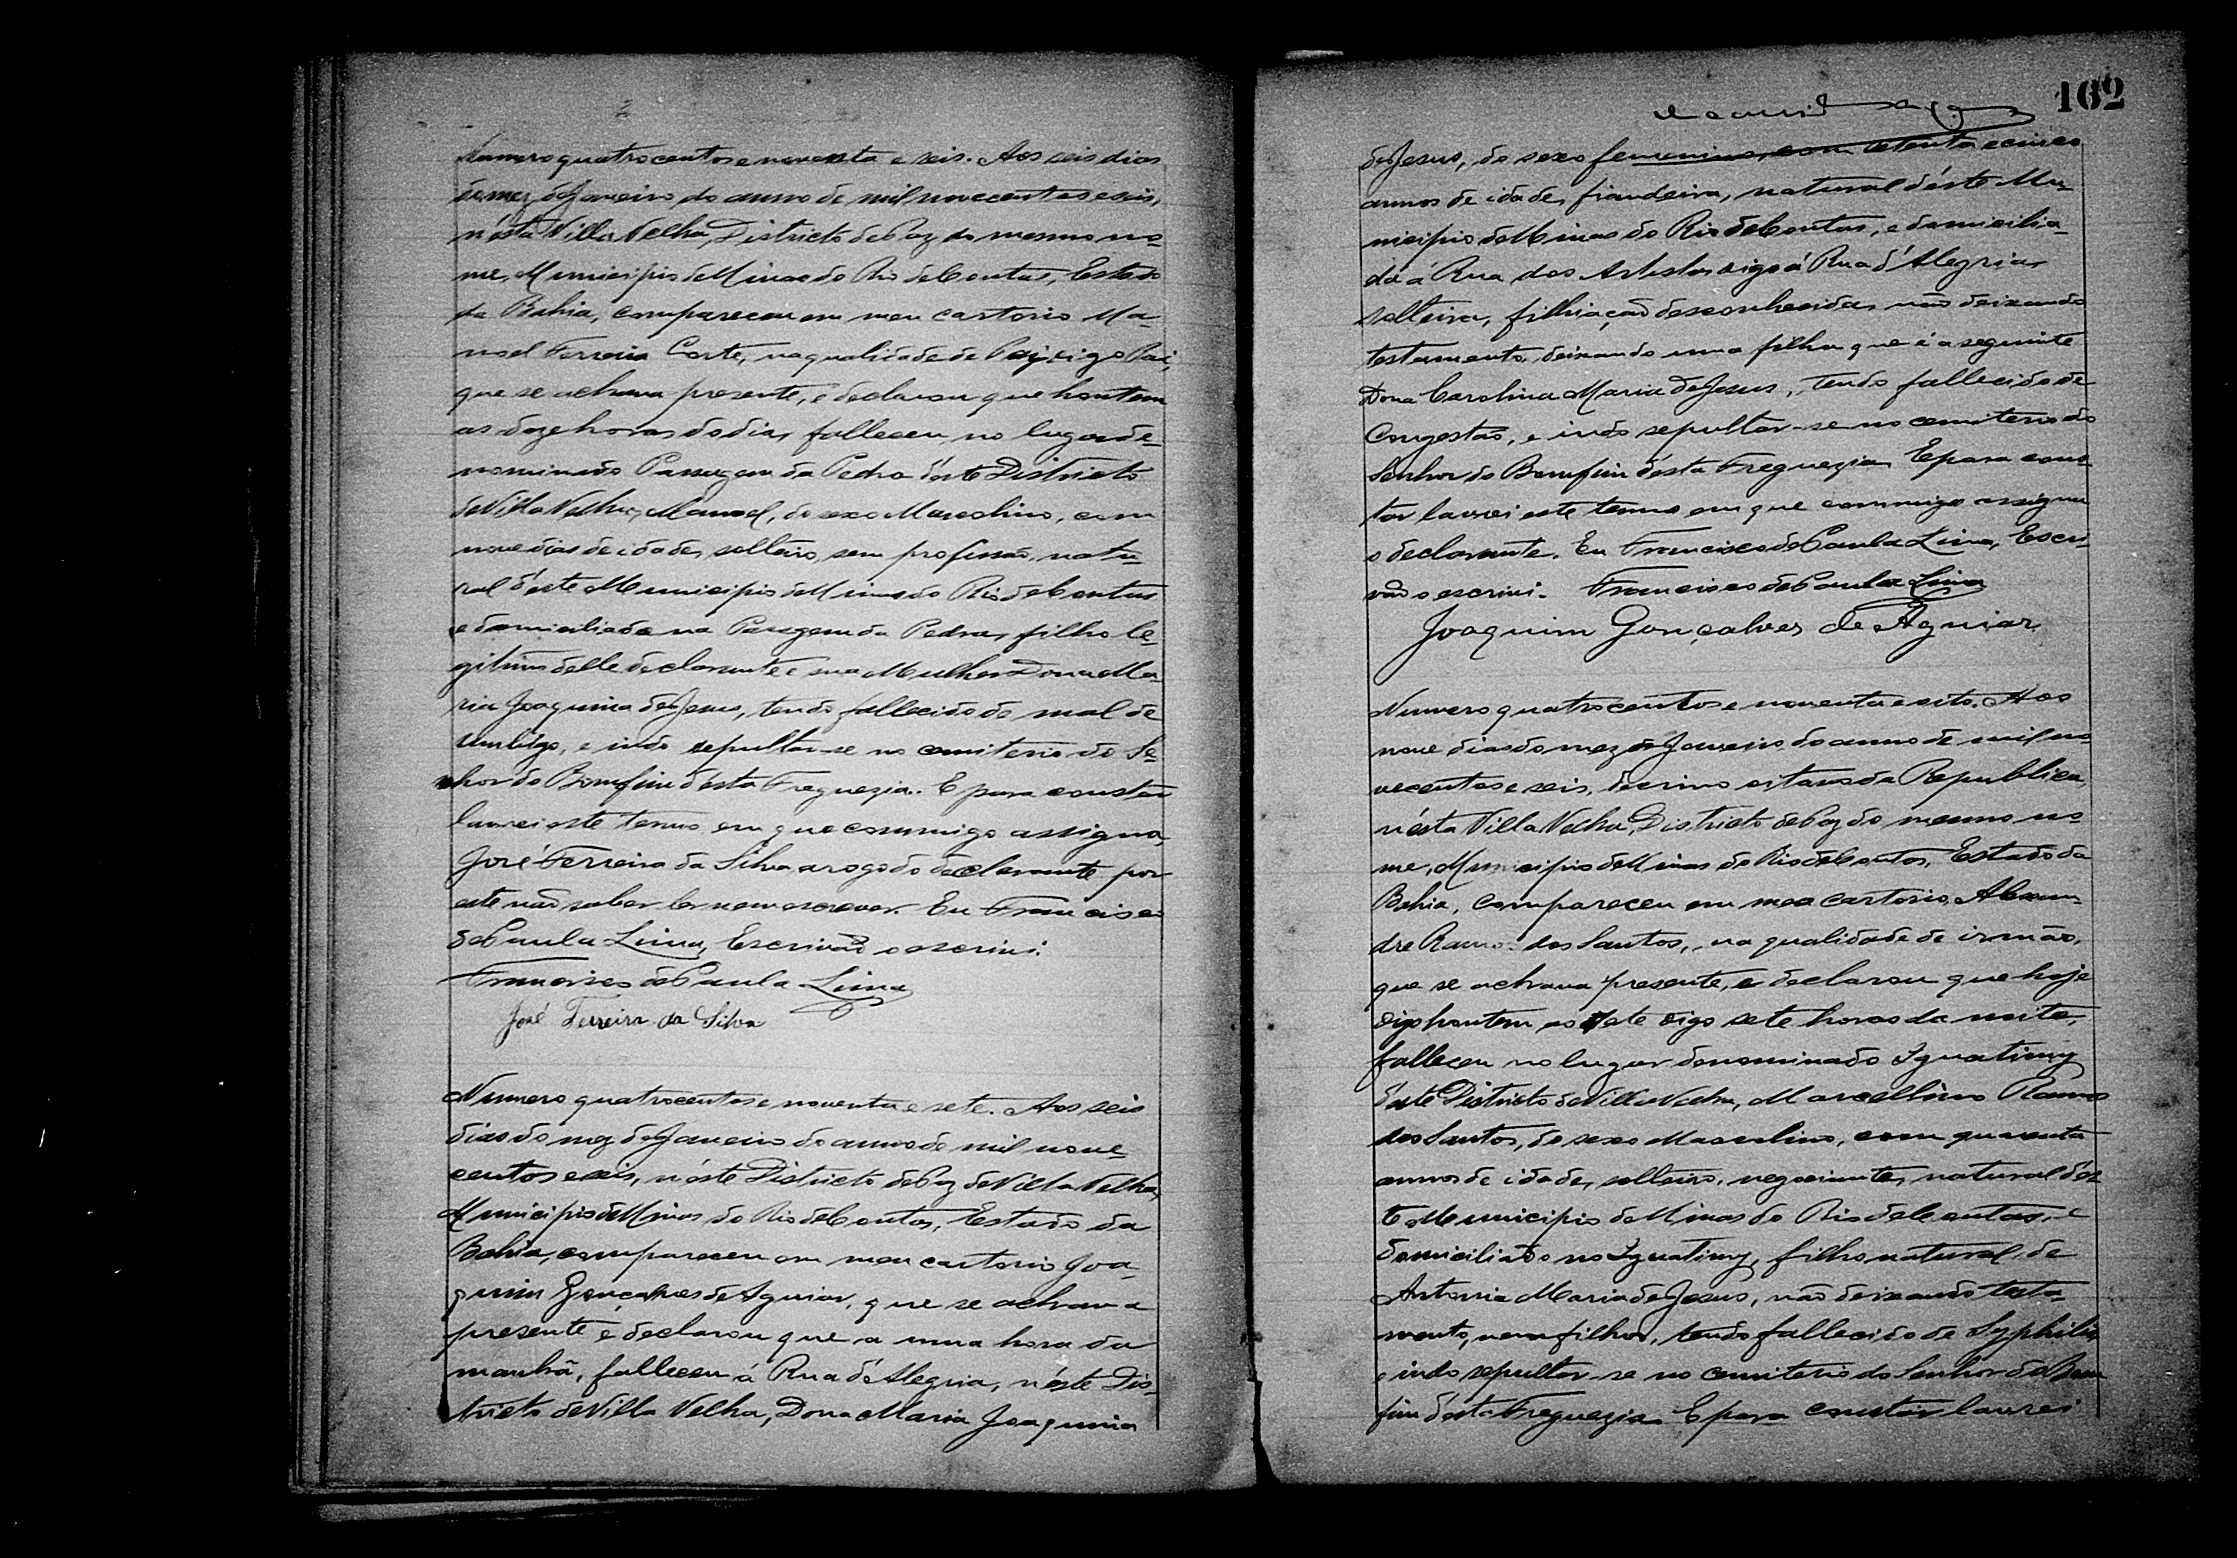 Numero quatrocentos e noventa e seis. Aos seis dias
do mez de Janeiro do anno de mil novecentos e seis,
n'ésta Villa Velha, Districto de Paz do mesmo no-
me, Municipio de Minas do Rio de Contas, Estado
da Bahia, compareceu em meu cartorio Ma-
noel Ferreira Corte, na qualidade de Pai, digo Pai,
que se achava presente, e declarou que hontem
as doze horas do dia, falleceu no lugar de-
nominado Passagem da Pedra d'éste Districto
de Villa Velha, Manoel, do sexo Masculino, com
nove dias de idade, solteiro, sem profissão, natu-
ral d'éste Municipio de Minas do Rio de Contas
e domiciliado na Passagem da Pedra, filho le-
gitimo delle declarante e sua Mulher Dona Ma-
ria Joaquina de Jesus, tendo fallecido de mal de
umbigo, e indo sepultar-se no cemiterio do Se-
nhor do Bomfim d'ésta Freguezia. E para constar
lavrei este termo, em que commigo assigna,
José Ferreira da Silva a rogo do declarante por
este não saber ler nem escrever. Eu Francisco
de Paula Lima, Escrivão o escrivi.
Francisco de Paula Lima
José Ferreira da Silva
Numero quatrocentos e noventa e sete. Aos seis
dias do mez de Janeiro do anno de mil nove-
centos e seis, n'éste Districto de Paz de Villa Velha,
Municipio de Minas do Rio de Contas, Estado da
Bahia, compareceu em meu cartorio Joa-
quim Gonçalves de Aguiar, que se achava
presente e declarou que a uma hora da
manhã, falleceu á Rua d'Alegria, n'éste Dis-
tricto de Villa Velha, Dona Maria Joaquina
162
de Jesus, do sexo femenino, com setenta e cinco
annos de idade, fiandeira, natural d'éste Mu-
nicipio de Minas do Rio de Contas, e domicilia-
da á Rua dos Artistas digo á Rua d'Alegria,
solteira, filhiação desconhecida, não deixando
testamento, deixando uma filha que é a seguinte
Dona Carolina Maria de Jesus, tendo fallecido de
Congestão, e indo sepultar-se no cemiterio do
Senhor do Bomfim désta Freguezia. E para cons-
tar lavrei este termo em que commigo assigna
o declarante. Eu Francisco de Paula Lima, Escri-
vão o escrivi. Francisco de Paula Lima
Joaquim Gonçalves de Aguiar
Numero quatrocentos e noventa e oito. Aos
nove dias do mez de Janeiro do anno de mil no-
vecentos e seis, decimo oitavo da Republica,
n'ésta Villa Velha, Districto de Paz do mesmo no-
me, Municipio de Minas do Rio de Contas, Estado da
Bahia, compareceu em meu cartorio, Alexan-
dre Ramos dos Santos, na qualidade de irmão,
que se achava presente, e declarou que hoje
digo hontem, as sete digo sete horas da noite,
falleceu no lugar denominado Iguatimy
d'éste Districto de Villa Velha, Marcellino Ramos
dos Santos, do sexo Masculino, com quarenta
annos de idade, solteiro, negociante, natural d'és-
te Municipio de Minas do Rio de Contas, e
domiciliado no Iguatimy, filho natural, de
Antonia Maria de Jesus, não deixando testa-
mento, nem filhos, tendo fallecido de Syphilis,
e indo sepultar-se no cemiterio do Senhor do Bom
fim d'ésta Freguezia. E para constar lavrei